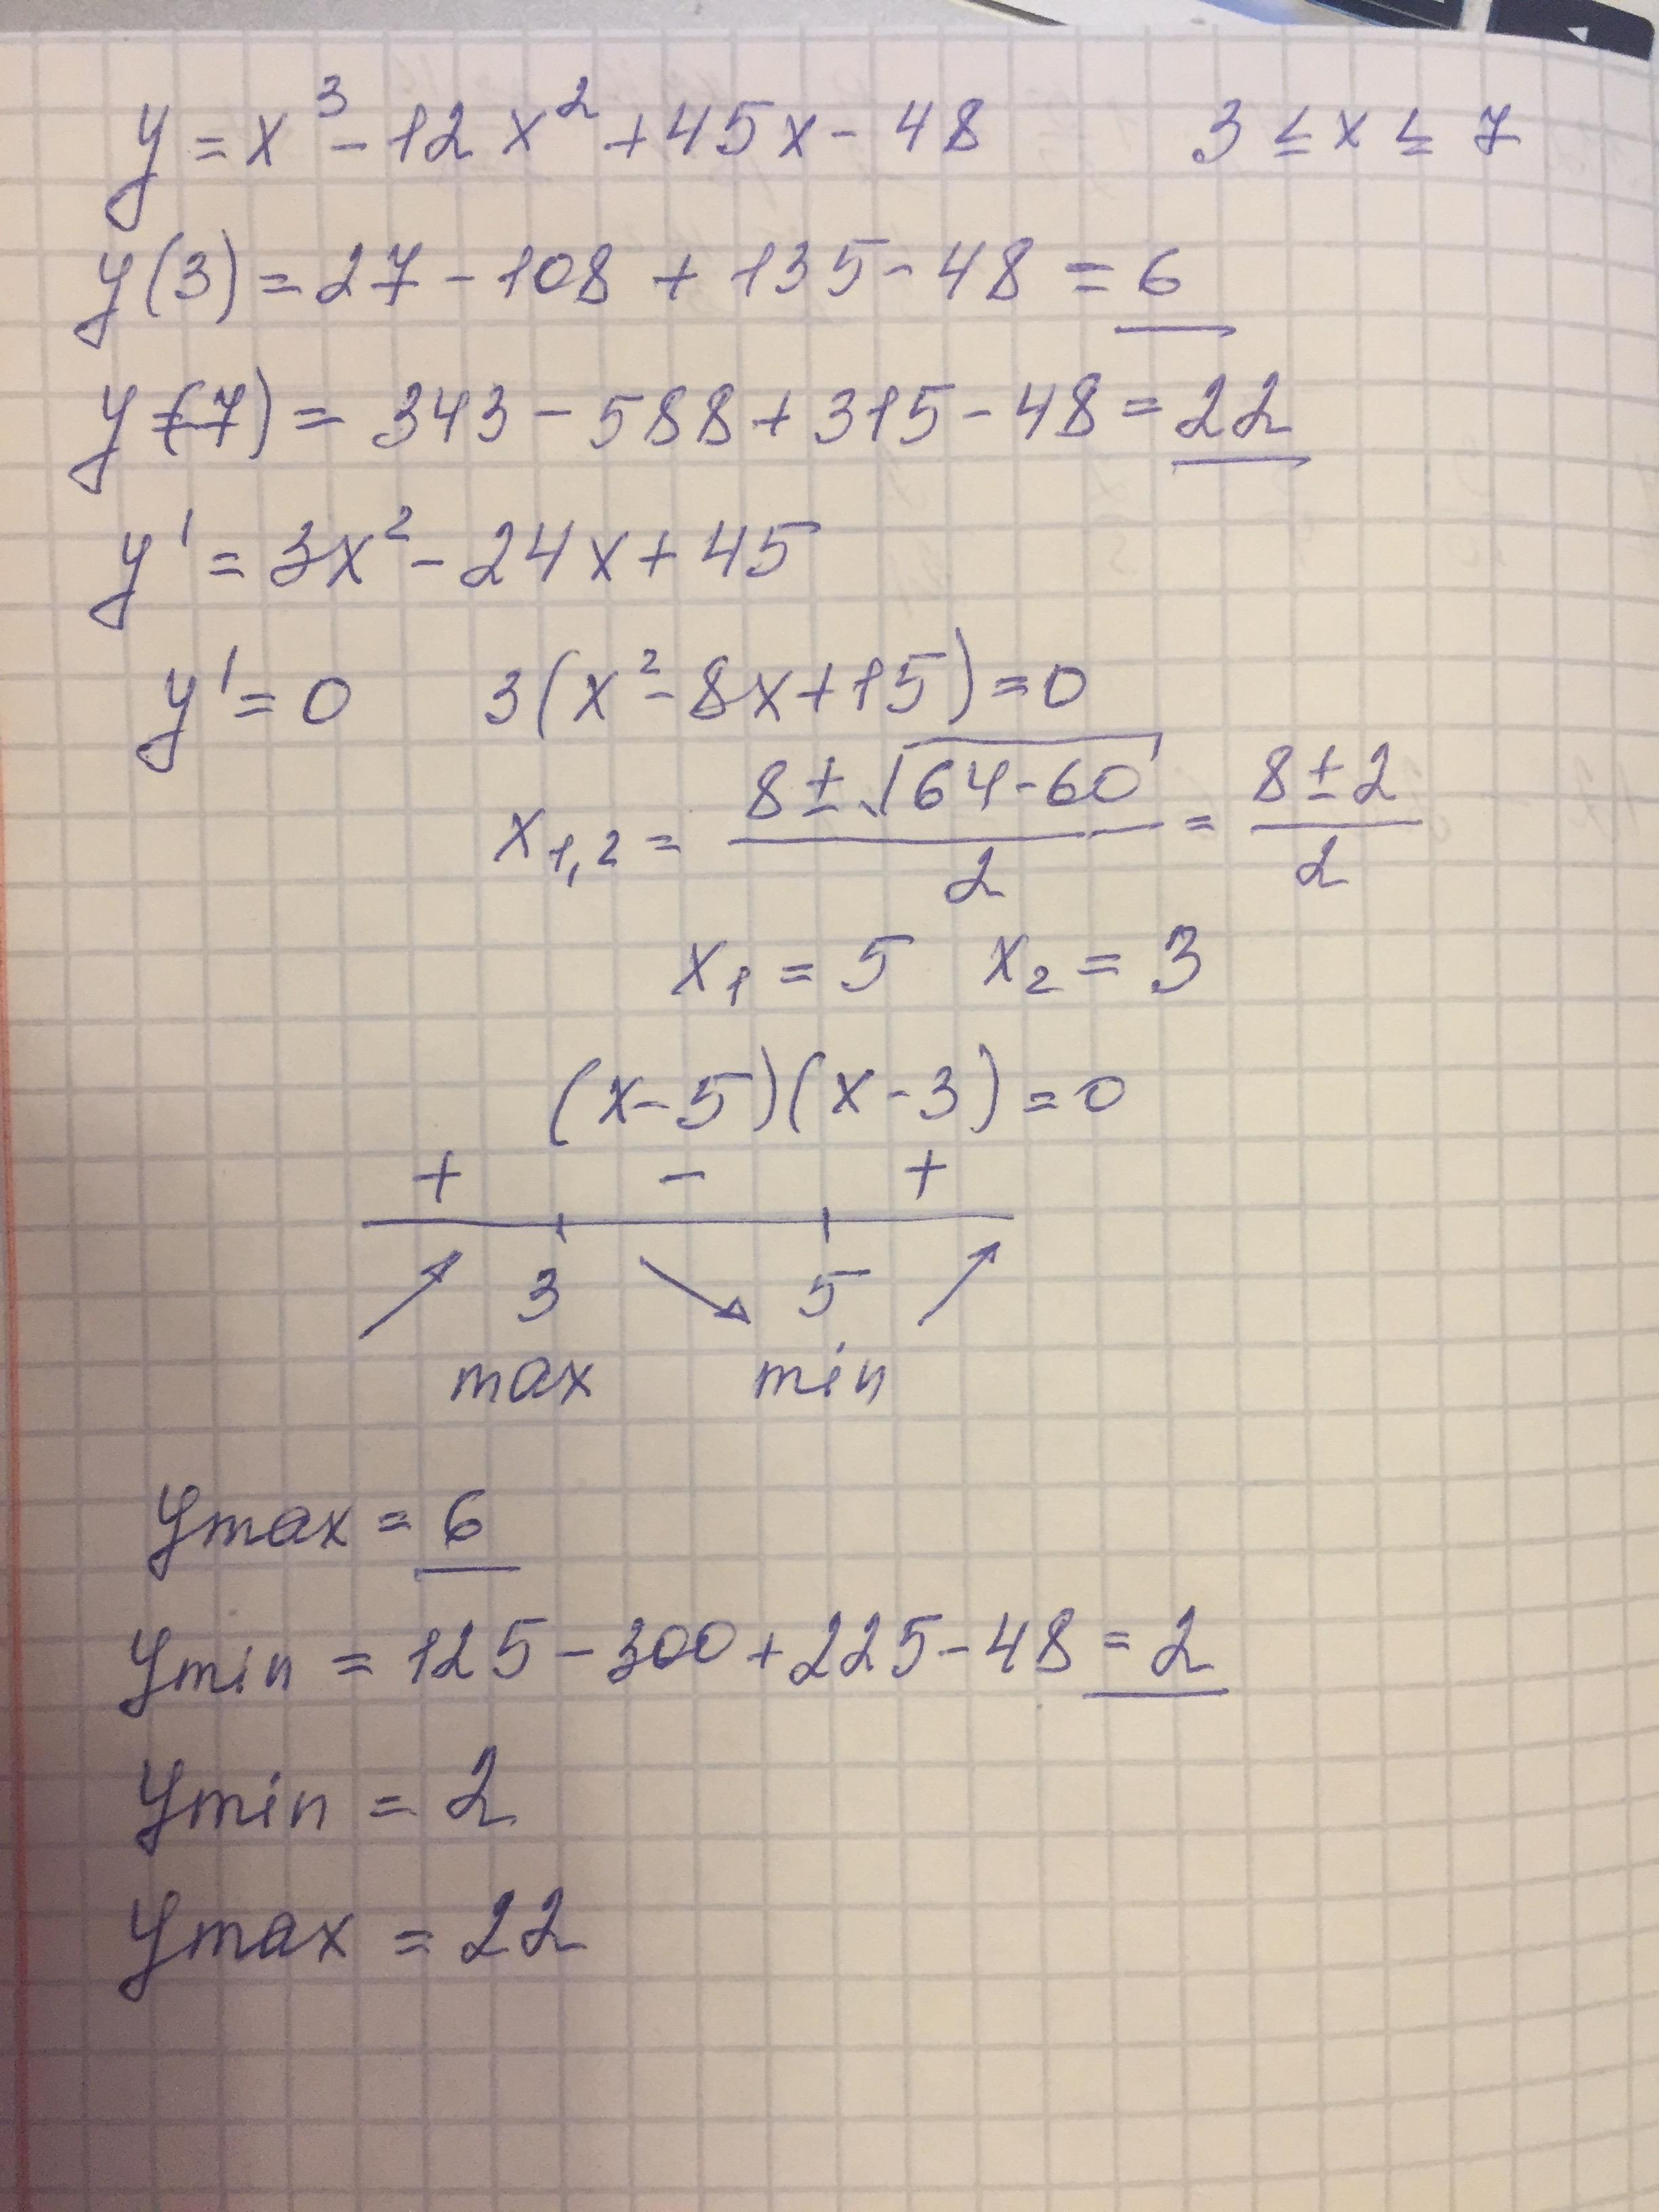 y = x³ - 12x² + 45x - 48 3 ≤ x ≤ 7
y(3) = 27 - 108 + 135 - 48 = 6
y(7) = 343 - 588 + 315 - 48 = 22
y' = 3x² - 24x + 45
y' = 0 3(x² - 8x + 15) = 0
x₁,₂ = (8 ± √(64 - 60))/2 = (8 ± 2)/2
x₁ = 5 x₂ = 3
(x - 5)(x - 3) = 0
+ - +
↗ 3 ↘ 5 ↗
max min
ymax = 6
ymin = 125 - 300 + 225 - 48 = 2
ymin = 2
ymax = 22